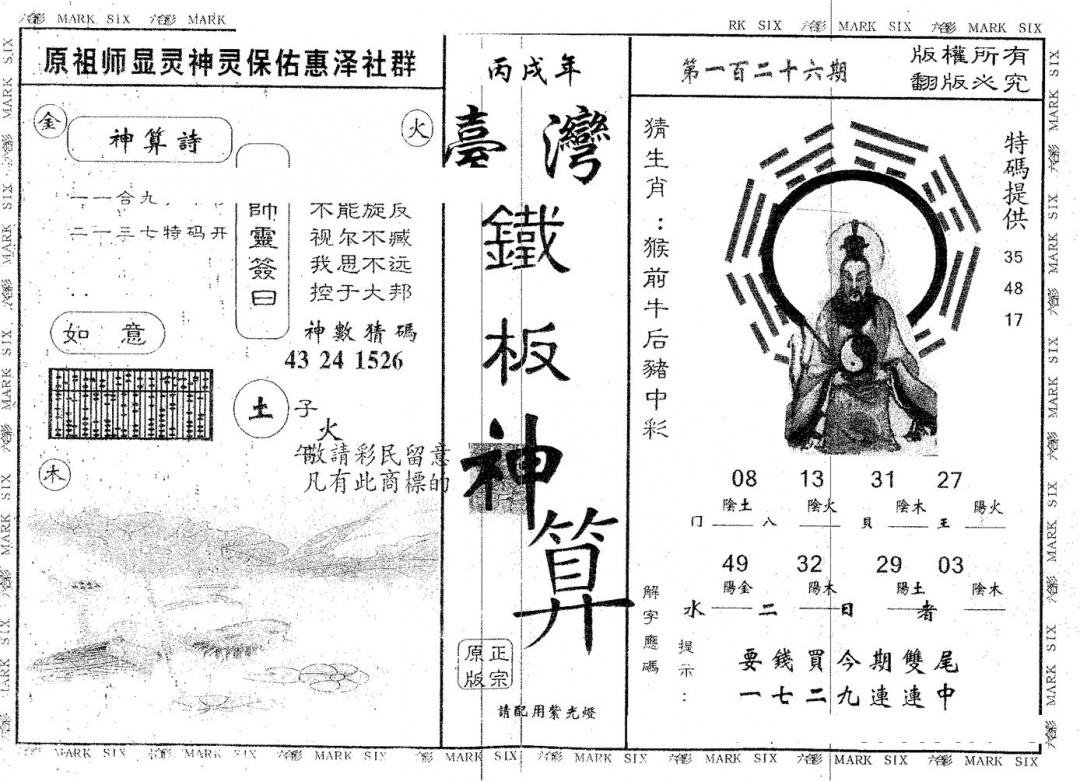 六合彩 MARK SIX 六合彩 MARK
RK SIX 六合彩 MARK SIX 六合彩 MARK SIX
原祖师显灵神灵保佑惠泽社群
金
神算詩
火
一一合九
二一三七特码开
如意
木
帥靈簽曰
不能旋反
视尔不臧
我思不远
控于大邦
神數猜碼
43 24 1526
土
子
火
午
敬請彩民留意
凡有此商標的
丙戌年
臺灣
鐵
板
神
算
正宗
原版
請配用紫光燈
第一百二十六期
版權所有
翻版必究
猜生肖：猴前牛后豬中彩
特碼提供
35
48
17
08 13 31 27
陰土 陰火 陰木 陽火
门 八 貝 王
49 32 29 03
陽金 陽木 陽土 陰木
水 二 日 者
解字應碼
提示：
要錢買今期雙尾
一七二九連連中
六合彩 MARK SIX 六合彩 MARK SIX 六合彩 MARK SIX 六合彩 MARK SIX 六合彩 MARK SIX 六合彩 MARK SIX 六合彩 MARK SIX 六合彩 MARK SIX